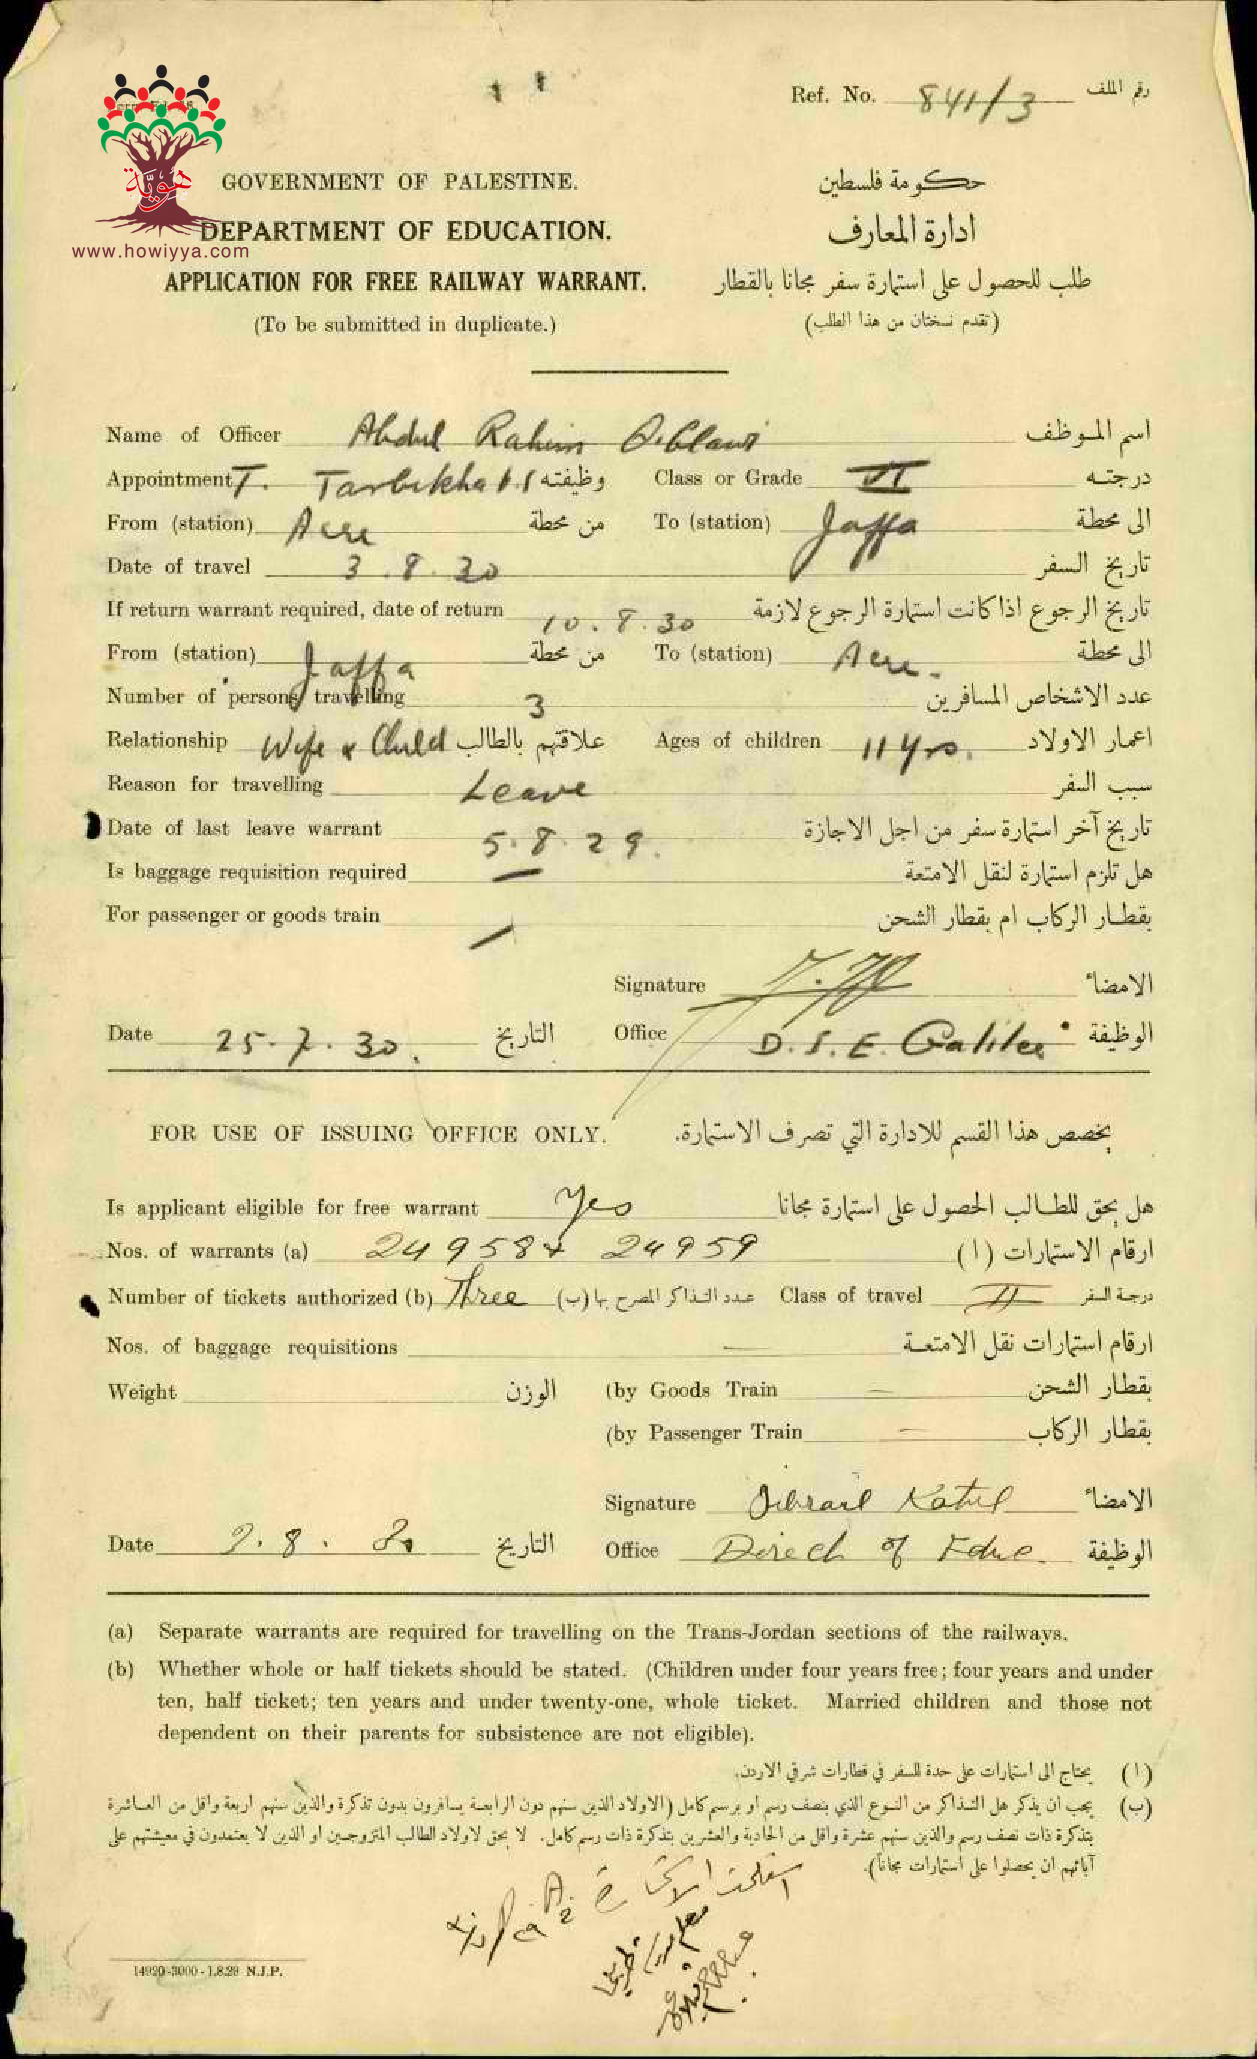 Ref. No. 841/3 رقم الملف
هويّة
www.howiyya.com
GOVERNMENT OF PALESTINE. حكومة فلسطين
DEPARTMENT OF EDUCATION. ادارة المعارف
APPLICATION FOR FREE RAILWAY WARRANT. طلب للحصول على استمارة سفر مجانا بالقطار
(To be submitted in duplicate.) (تقدم نسختان من هذا الطلب)
Name of Officer Abdul Rahim اسم الموظف
Appointment T. Tarbikha وظيفته Class or Grade VI درجته
From (station) Acre من محطة To (station) Jaffa الى محطة
Date of travel 3.8.30 تاريخ السفر
If return warrant required, date of return 10.8.30 تاريخ الرجوع اذا كانت استمارة الرجوع لازمة
From (station) Jaffa من محطة To (station) Acre. الى محطة
Number of persons travelling 3 عدد الاشخاص المسافرين
Relationship Wife & Child علاقتهم بالطالب Ages of children 11 yrs. اعمار الاولاد
Reason for travelling Leave سبب السفر
Date of last leave warrant 5.8.29. تاريخ آخر استمارة سفر من اجل الاجازة
Is baggage requisition required — هل تلزم استمارة لنقل الامتعة
For passenger or goods train — بقطار الركاب ام بقطار الشحن
Signature الامضاء
Date 25.7.30. التاريخ Office D.I.E. Galilee الوظيفة
FOR USE OF ISSUING OFFICE ONLY. يخصص هذا القسم للادارة التي تصرف الاستمارة.
Is applicant eligible for free warrant Yes هل يحق للطالب الحصول على استمارة مجانا
Nos. of warrants (a) 24958 & 24959 ارقام الاستمارات (ا)
Number of tickets authorized (b) Three عدد التذاكر المصرح بها (ب) Class of travel II درجة السفر
Nos. of baggage requisitions — ارقام استمارات نقل الامتعة
Weight الوزن (by Goods Train — بقطار الشحن
(by Passenger Train — بقطار الركاب
Signature Jibrail Katul الامضاء
Date 2.8.30 التاريخ Office Direct. of Educ. الوظيفة
(a) Separate warrants are required for travelling on the Trans-Jordan sections of the railways.
(b) Whether whole or half tickets should be stated. (Children under four years free; four years and under
ten, half ticket; ten years and under twenty-one, whole ticket. Married children and those not
dependent on their parents for subsistence are not eligible).
(ا) يحتاج الى استمارات على حدة للسفر في قطارات شرقي الاردن.
(ب) يجب ان يذكر هل التذاكر من النوع الذي بنصف رسم او برسم كامل (الاولاد الذين سنهم دون الرابعة يسافرون بدون تذكرة والذين سنهم اربعة واقل من العاشرة
بتذكرة ذات نصف رسم والذين سنهم عشرة واقل من الحادية والعشرين بتذكرة ذات رسم كامل. لا يحق لاولاد الطالب المتزوجين او الذين لا يعتمدون في معيشتهم على
آبائهم ان يحصلوا على استمارات مجاناً).
استلمت الاستمارة
14920-3000-1.8.29 N.J.P.